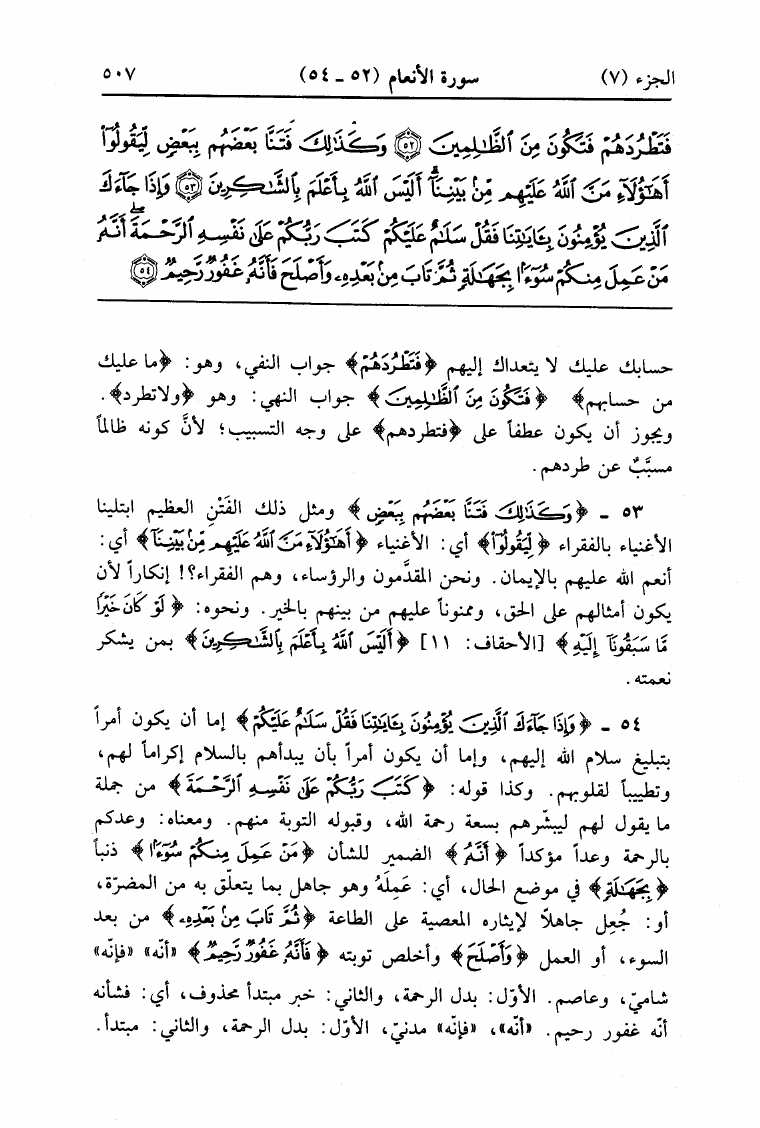 الجزء (٧) سورة الأنعام (٥٢ ـ ٥٤) ٥٠٧
فَتَطْرُدَهُمْ فَتَكُونَ مِنَ ٱلظَّٰلِمِينَ ۝٥٢ وَكَذَٰلِكَ فَتَنَّا بَعْضَهُم بِبَعْضٍ لِّيَقُولُوٓا۟
أَهَٰٓؤُلَآءِ مَنَّ ٱللَّهُ عَلَيْهِم مِّنۢ بَيْنِنَآ ۗ أَلَيْسَ ٱللَّهُ بِأَعْلَمَ بِٱلشَّٰكِرِينَ ۝٥٣ وَإِذَا جَآءَكَ
ٱلَّذِينَ يُؤْمِنُونَ بِـَٔايَٰتِنَا فَقُلْ سَلَٰمٌ عَلَيْكُمْ ۖ كَتَبَ رَبُّكُمْ عَلَىٰ نَفْسِهِ ٱلرَّحْمَةَ ۖ أَنَّهُۥ
مَنْ عَمِلَ مِنكُمْ سُوٓءًۢا بِجَهَٰلَةٍ ثُمَّ تَابَ مِنۢ بَعْدِهِۦ وَأَصْلَحَ فَأَنَّهُۥ غَفُورٌ رَّحِيمٌ ۝٥٤
حسابك عليك لا يتعداك إليهم ﴿فَتَطْرُدَهُمْ﴾ جواب النفي، وهو: ﴿ما عليك
من حسابهم﴾ ﴿فَتَكُونَ مِنَ ٱلظَّٰلِمِينَ﴾ جواب النهي: وهو ﴿ولاتطرد﴾.
ويجوز أن يكون عطفاً على ﴿فتطردهم﴾ على وجه التسبيب؛ لأنَّ كونه ظالماً
مسبَّبٌ عن طردهم.
٥٣ ـ ﴿وَكَذَٰلِكَ فَتَنَّا بَعْضَهُم بِبَعْضٍ﴾ ومثل ذلك الفَتْنِ العظيم ابتلينا
الأغنياء بالفقراء ﴿لِّيَقُولُوٓا۟﴾ أي: الأغنياء ﴿أَهَٰٓؤُلَآءِ مَنَّ ٱللَّهُ عَلَيْهِم مِّنۢ بَيْنِنَآ﴾ أي:
أنعم الله عليهم بالإيمان. ونحن المقدَّمون والرؤساء، وهم الفقراء؟! إنكاراً لأن
يكون أمثالهم على الحق، وممنوناً عليهم من بينهم بالخير. ونحوه: ﴿لَوْ كَانَ خَيْرًا
مَّا سَبَقُونَآ إِلَيْهِ﴾ [الأحقاف: ١١] ﴿أَلَيْسَ ٱللَّهُ بِأَعْلَمَ بِٱلشَّٰكِرِينَ﴾ بمن يشكر
نعمته.
٥٤ ـ ﴿وَإِذَا جَآءَكَ ٱلَّذِينَ يُؤْمِنُونَ بِـَٔايَٰتِنَا فَقُلْ سَلَٰمٌ عَلَيْكُمْ﴾ إما أن يكون أمراً
بتبليغ سلام الله إليهم، وإما أن يكون أمراً بأن يبدأهم بالسلام إكراماً لهم،
وتطييباً لقلوبهم. وكذا قوله: ﴿كَتَبَ رَبُّكُمْ عَلَىٰ نَفْسِهِ ٱلرَّحْمَةَ﴾ من جملة
ما يقول لهم ليبشّرهم بسعة رحمة الله، وقبوله التوبة منهم. ومعناه: وعدكم
بالرحمة وعداً مؤكداً ﴿أَنَّهُۥ﴾ الضمير للشأن ﴿مَنْ عَمِلَ مِنكُمْ سُوٓءًۢا﴾ ذنباً
﴿بِجَهَٰلَةٍ﴾ في موضع الحال، أي: عَمِلَهُ وهو جاهل بما يتعلّق به من المضرّة،
أو: جُعِل جاهلاً لإيثاره المعصية على الطاعة ﴿ثُمَّ تَابَ مِنۢ بَعْدِهِۦ﴾ من بعد
السوء، أو العمل ﴿وَأَصْلَحَ﴾ وأخلص توبته ﴿فَأَنَّهُۥ غَفُورٌ رَّحِيمٌ﴾ «أنّه» «فإنّه»
شاميّ، وعاصم. الأوّل: بدل الرحمة، والثاني: خبر مبتدأ محذوف، أي: فشأنه
أنّه غفور رحيم. «أنّه»، «فإنّه» مدنيّ، الأوّل: بدل الرحمة، والثاني: مبتدأ.